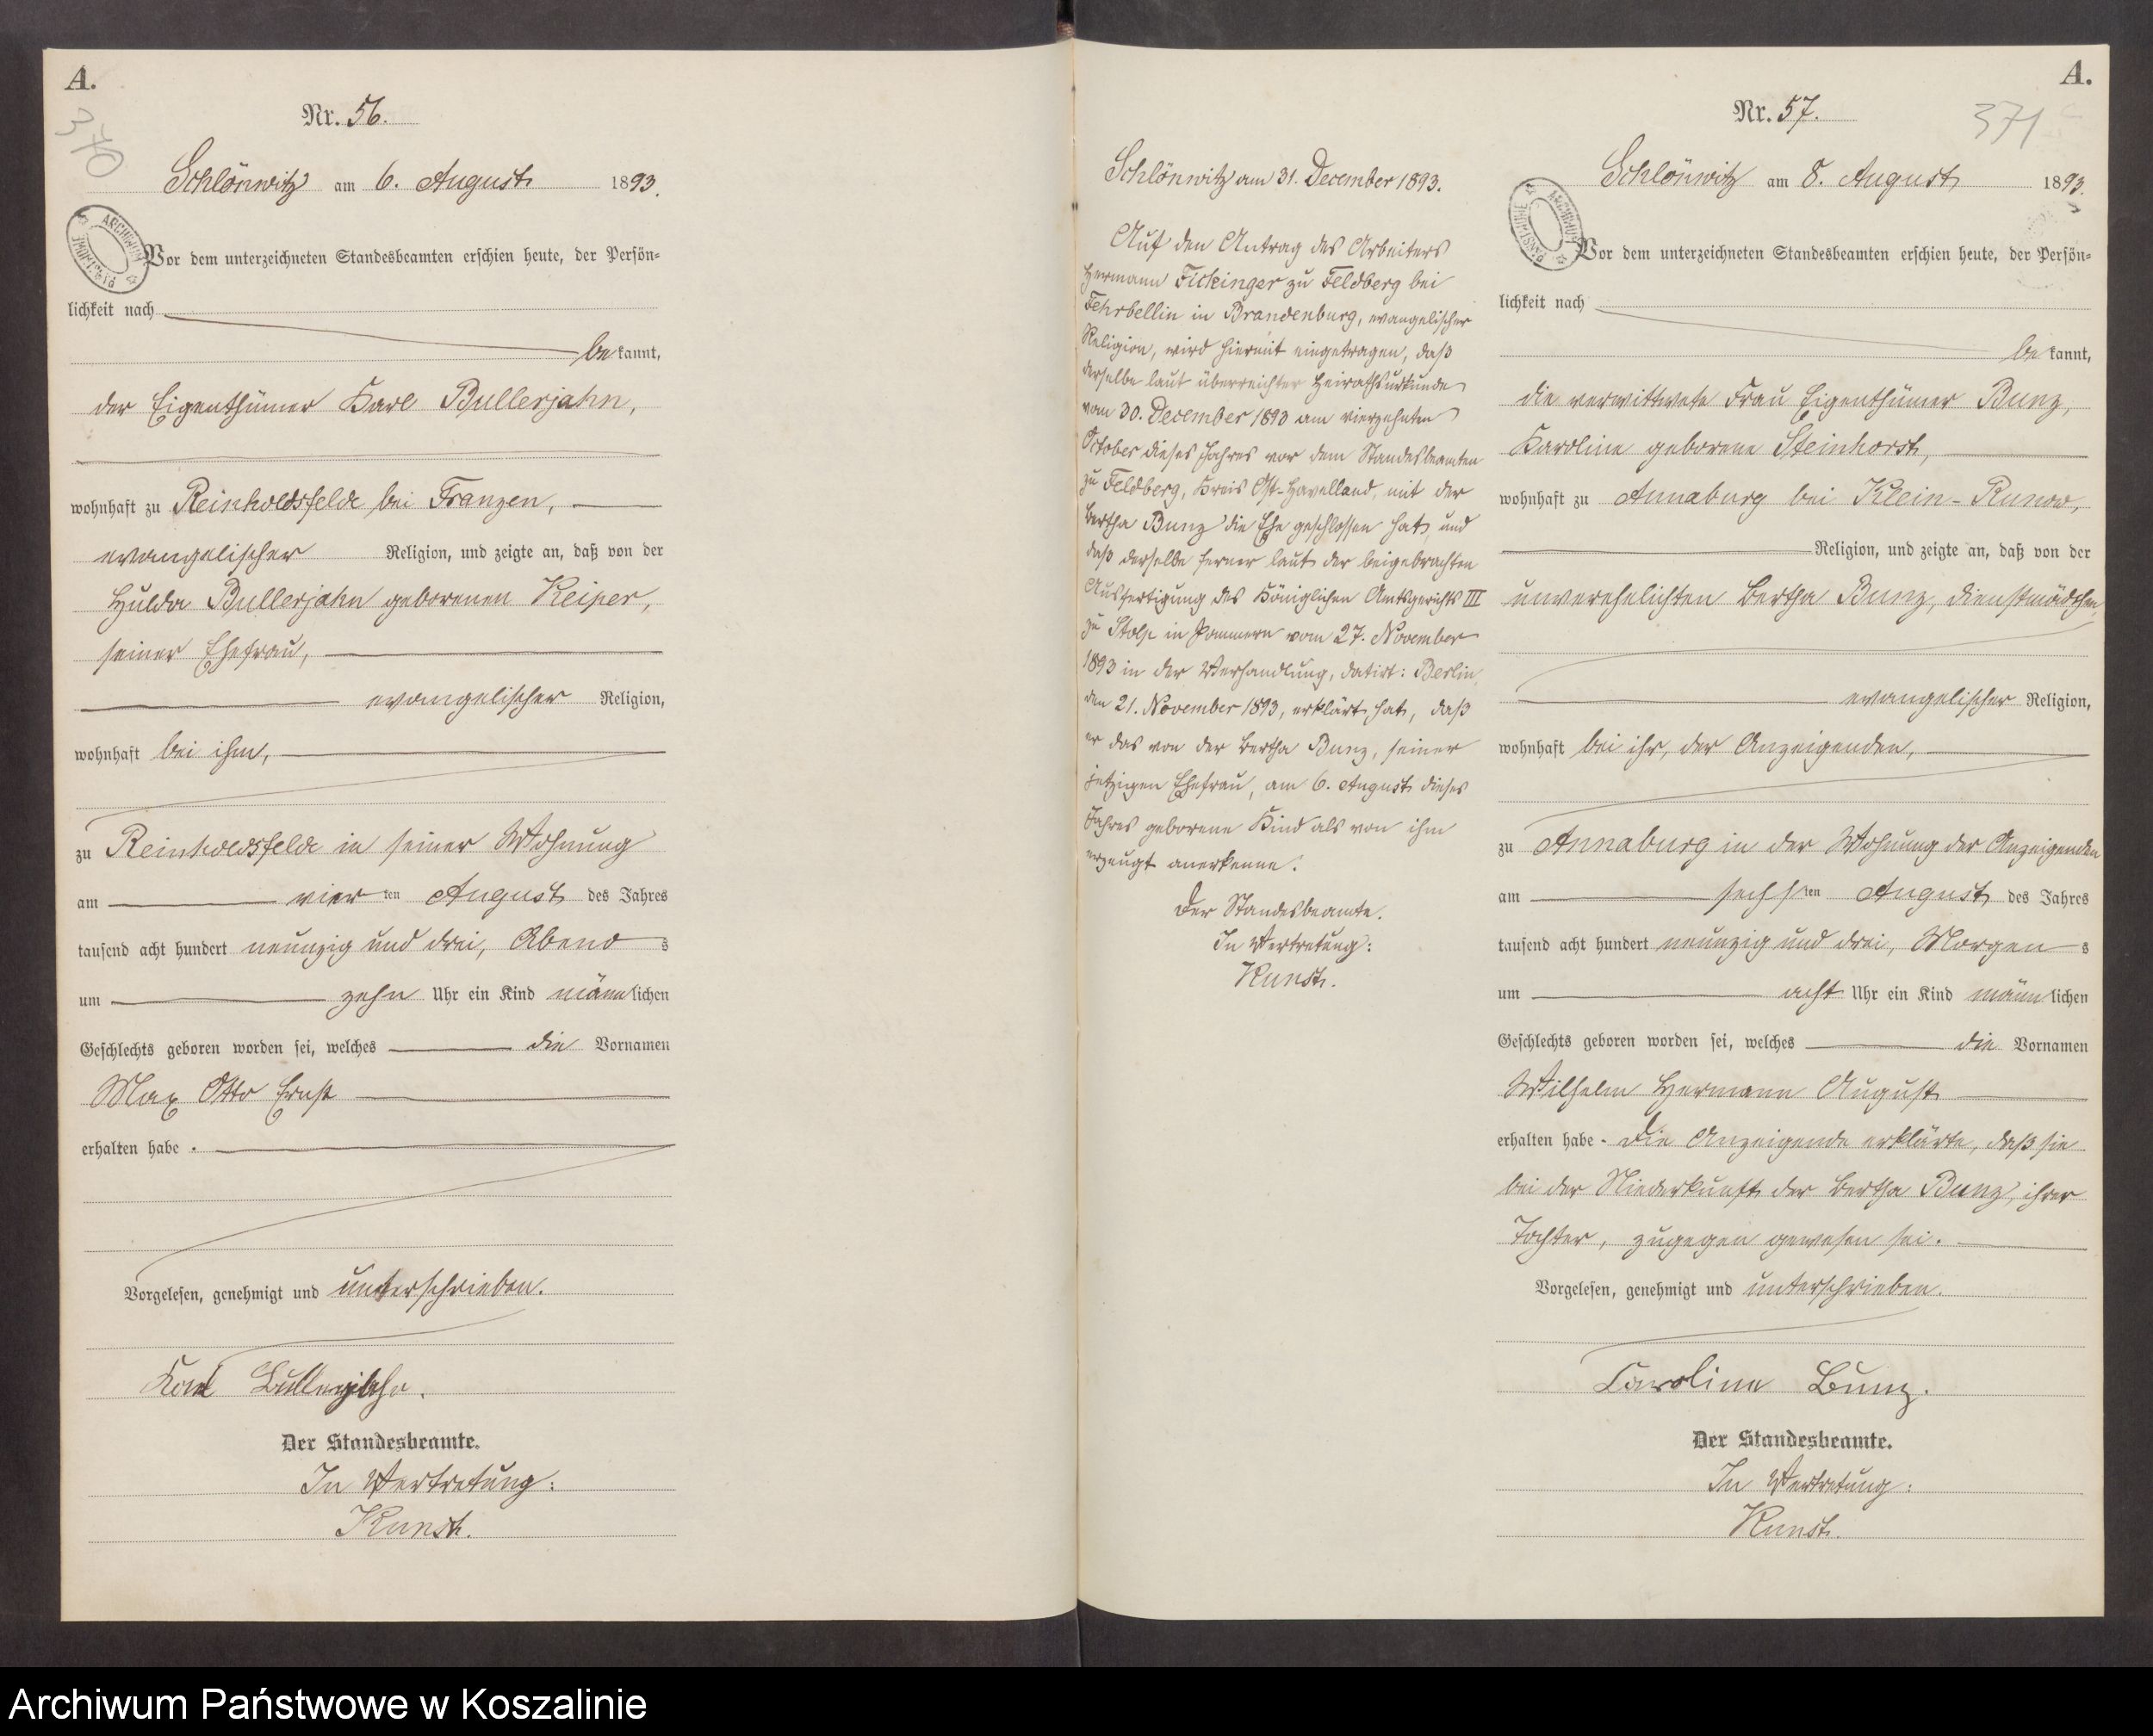 A.
370
Nr. 56.
Schlönwitz am 6. August 1893.
Vor dem unterzeichneten Standesbeamten erschien heute, der Persön-
lichkeit nach
be kannt,
der Eigenthümer Karl Bullerjahn,
wohnhaft zu Reinholdsfelde bei Franzen,
evangelischer Religion, und zeigte an, daß von der
Hulda Bullerjahn geborenen Keiper,
seiner Ehefrau,
evangelischer Religion,
wohnhaft bei ihm,
zu Reinholdsfelde in seiner Wohnung
am vier ten August des Jahres
tausend acht hundert neunzig und drei, Abend s
um zehn Uhr ein Kind männ lichen
Geschlechts geboren worden sei, welches die Vornamen
Max Otto Ernst
erhalten habe.
Vorgelesen, genehmigt und unterschrieben.
Karl Bullerjahn.
Der Standesbeamte.
In Vertretung:
Kunst.
Schlönwitz am 31. December 1893.
Auf den Antrag des Arbeiters
Hermann Fickinger zu Feldberg bei
Fehrbellin in Brandenburg, evangelischer
Religion, wird hiermit eingetragen, daß
derselbe laut überreichter Heirathsurkunde
vom 30. December 1893 am vierzehnten
October dieses Jahres vor dem Standesbeamten
zu Feldberg, Kreis Ost-Havelland, mit der
Bertha Bunz die Ehe geschlossen hat, und
daß derselbe ferner laut der beigebrachten
Ausfertigung des Königlichen Amtsgerichts III
zu Stolp in Pommern vom 27. November
1893 in der Verhandlung, datirt: Berlin,
den 21. November 1893, erklärt hat, daß
er das von der Bertha Bunz, seiner
jetzigen Ehefrau, am 6. August dieses
Jahres geborene Kind als von ihm
erzeugt anerkenne.
Der Standesbeamte.
In Vertretung:
Kunst.
A.
Nr. 57.
371
Schlönwitz am 8. August 1893.
Vor dem unterzeichneten Standesbeamten erschien heute, der Persön-
lichkeit nach
be kannt,
die verwittwete Frau Eigenthümer Bunz,
Karoline geborene Steinhorst,
wohnhaft zu Annaburg bei Klein-Runow,
Religion, und zeigte an, daß von der
unverehelichten Bertha Bunz, Dienstmädchen
evangelischer Religion,
wohnhaft bei ihr, der Anzeigenden,
zu Annaburg in der Wohnung der Anzeigenden
am sechs ten August des Jahres
tausend acht hundert neunzig und drei, Morgen s
um acht Uhr ein Kind männ lichen
Geschlechts geboren worden sei, welches die Vornamen
Wilhelm Hermann August
erhalten habe. Die Anzeigende erklärte, daß sie
bei der Niederkunft der Bertha Bunz, ihrer
Tochter, zugegen gewesen sei.
Vorgelesen, genehmigt und unterschrieben.
Caroline Bunz.
Der Standesbeamte.
In Vertretung:
Kunst.
Archiwum Państwowe w Koszalinie